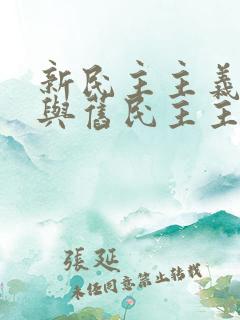 新民主主義
與舊民主主
張延
未经同意禁止转载